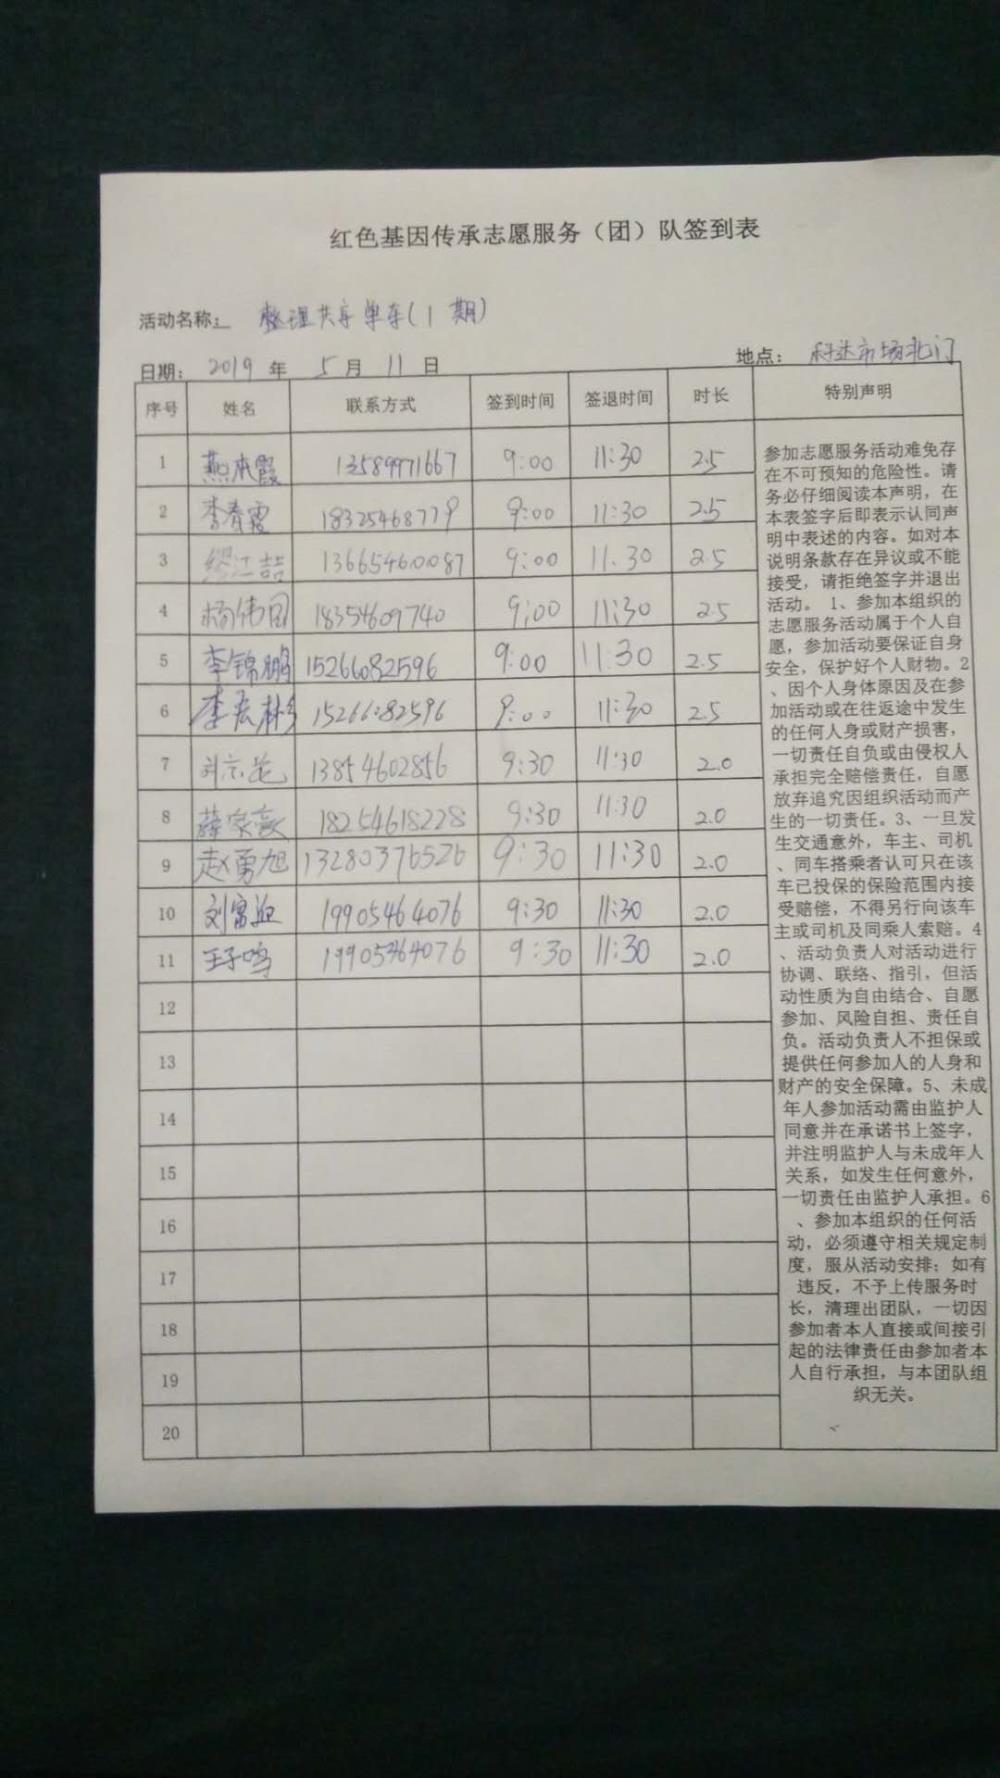 红色基因传承志愿服务（团）队签到表
活动名称： 整理共享单车（1期）
日期： 2019 年 5 月 11 日
地点： 科达市场北门
序号 姓名 联系方式 签到时间 签退时间 时长 特别声明
1 燕承霞 13589971667 9:00 11:30 2.5
2 李春霞 18325468779 9:00 11:30 2.5
3 13665460087 9:00 11.30 2.5
4 杨伟国 18354609740 9:00 11:30 2.5
5 李锦鹏 15266082596 9:00 11:30 2.5
6 李彦彬 15266082596 9:00 11:30 2.5
7 13854602856 9:30 11:30 2.0
8 薛家豪 18254618228 9:30 11:30 2.0
9 赵勇旭 13280376526 9:30 11:30 2.0
10 刘富迎 19905464076 9:30 11:30 2.0
11 王子鸣 19905464076 9:30 11:30 2.0
12
13
14
15
16
17
18
19
20
参加志愿服务活动难免存
在不可预知的危险性。请
务必仔细阅读本声明，在
本表签字后即表示认同声
明中表述的内容。如对本
说明条款存在异议或不能
接受，请拒绝签字并退出
活动。 1、参加本组织的
志愿服务活动属于个人自
愿，参加活动要保证自身
安全，保护好个人财物。2
、因个人身体原因及在参
加活动或在往返途中发生
的任何人身或财产损害，
一切责任自负或由侵权人
承担完全赔偿责任，自愿
放弃追究因组织活动而产
生的一切责任。3、一旦发
生交通意外，车主、司机
、同车搭乘者认可只在该
车已投保的保险范围内接
受赔偿，不得另行向该车
主或司机及同乘人索赔。4
、活动负责人对活动进行
协调、联络、指引，但活
动性质为自由结合、自愿
参加、风险自担、责任自
负。活动负责人不担保或
提供任何参加人的人身和
财产的安全保障。5、未成
年人参加活动需由监护人
同意并在承诺书上签字，
并注明监护人与未成年人
关系，如发生任何意外，
一切责任由监护人承担。6
、参加本组织的任何活
动，必须遵守相关规定制
度，服从活动安排；如有
违反，不予上传服务时
长，清理出团队，一切因
参加者本人直接或间接引
起的法律责任由参加者本
人自行承担，与本团队组
织无关。